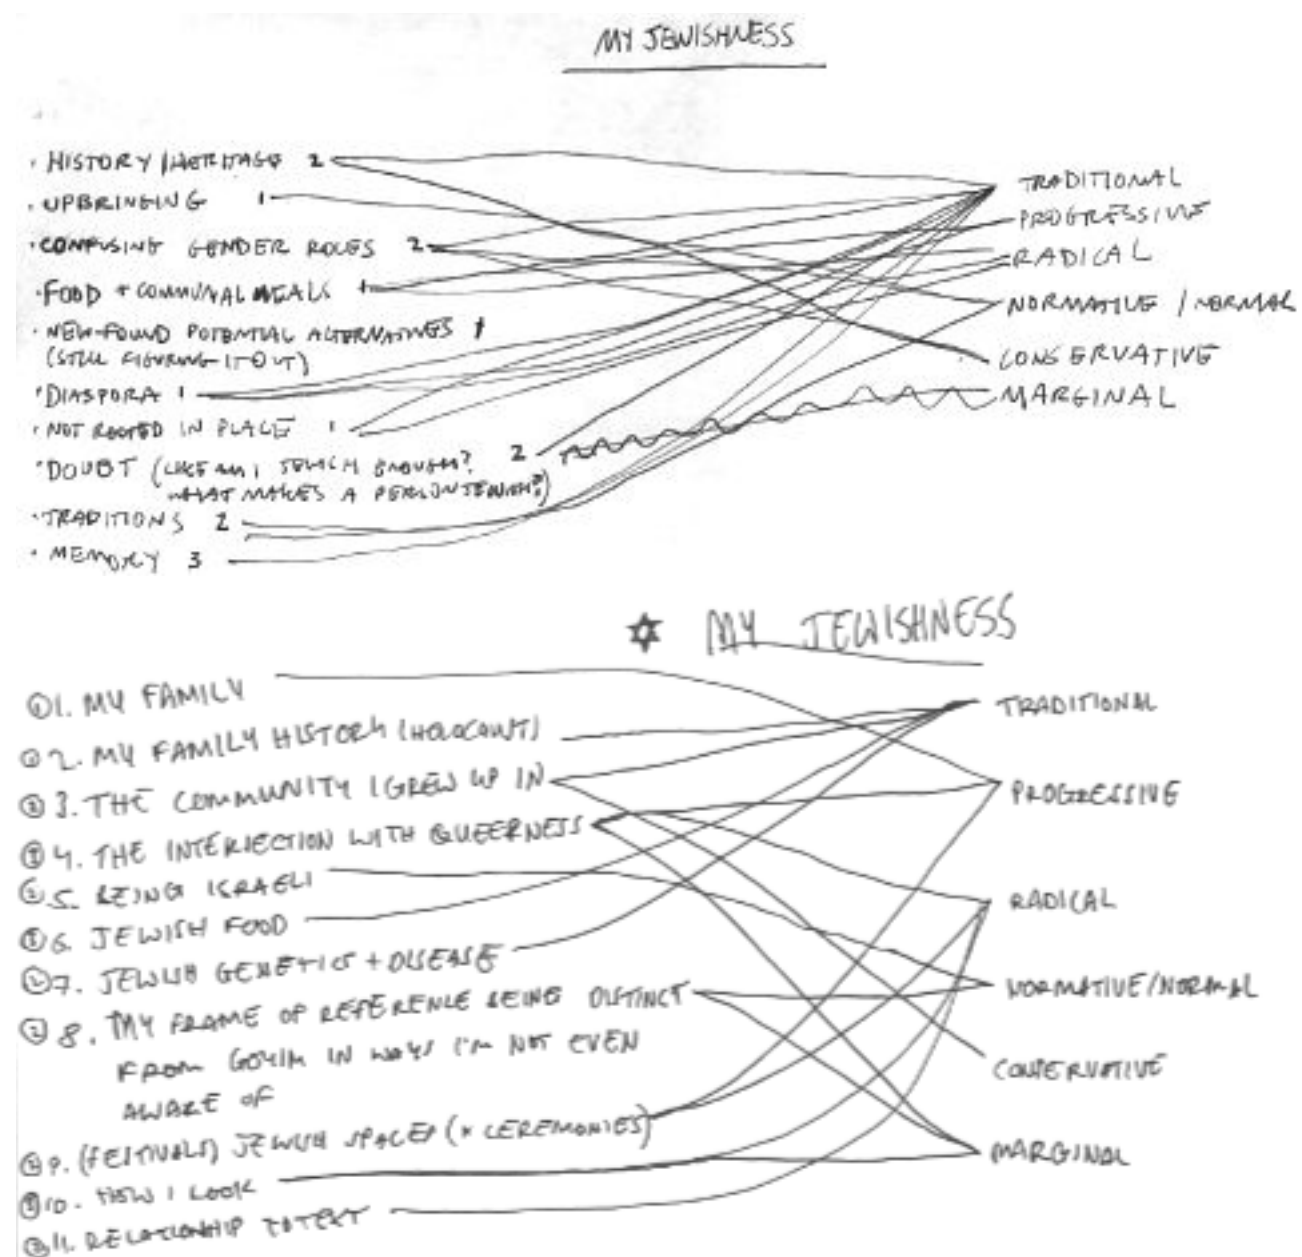 MY JEWISHNESS
· HISTORY / HERITAGE 2
· UPBRINGING 1
· CONFUSING GENDER ROLES 2
· FOOD + COMMUNAL MEALS 1
· NEW-FOUND POTENTIAL ALTERNATIVES 1
(STILL FIGURING IT OUT)
· DIASPORA 1
· NOT ROOTED IN PLACE 1
· DOUBT (LIKE AM I JEWISH ENOUGH? 2
WHAT MAKES A PERSON JEWISH?)
· TRADITIONS 2
· MEMORY 3
TRADITIONAL
PROGRESSIVE
RADICAL
NORMATIVE / NORMAL
CONSERVATIVE
MARGINAL
MY JEWISHNESS
1. MY FAMILY
2. MY FAMILY HISTORY (HOLOCAUST)
3. THE COMMUNITY I GREW UP IN
4. THE INTERSECTION WITH QUEERNESS
5. BEING ISRAELI
6. JEWISH FOOD
7. JEWISH GENETICS + DISEASE
8. MY FRAME OF REFERENCE BEING DISTINCT
FROM GOYIM IN WAYS I'M NOT EVEN
AWARE OF
9. (FESTIVALS) JEWISH SPACES (+ CEREMONIES)
10. HOW I LOOK
11. RELATIONSHIP TO TEXT
TRADITIONAL
PROGRESSIVE
RADICAL
NORMATIVE/NORMAL
CONSERVATIVE
MARGINAL